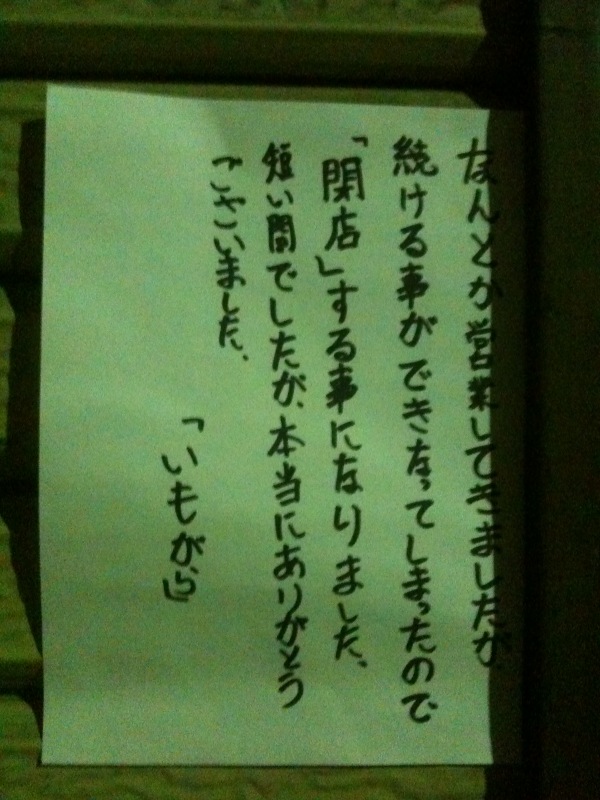 なんとか営業してきましたが
続ける事ができなってしまったので
「閉店」する事になりました、
短い間でしたが、本当にありがとう
ございました、
「いもがら」